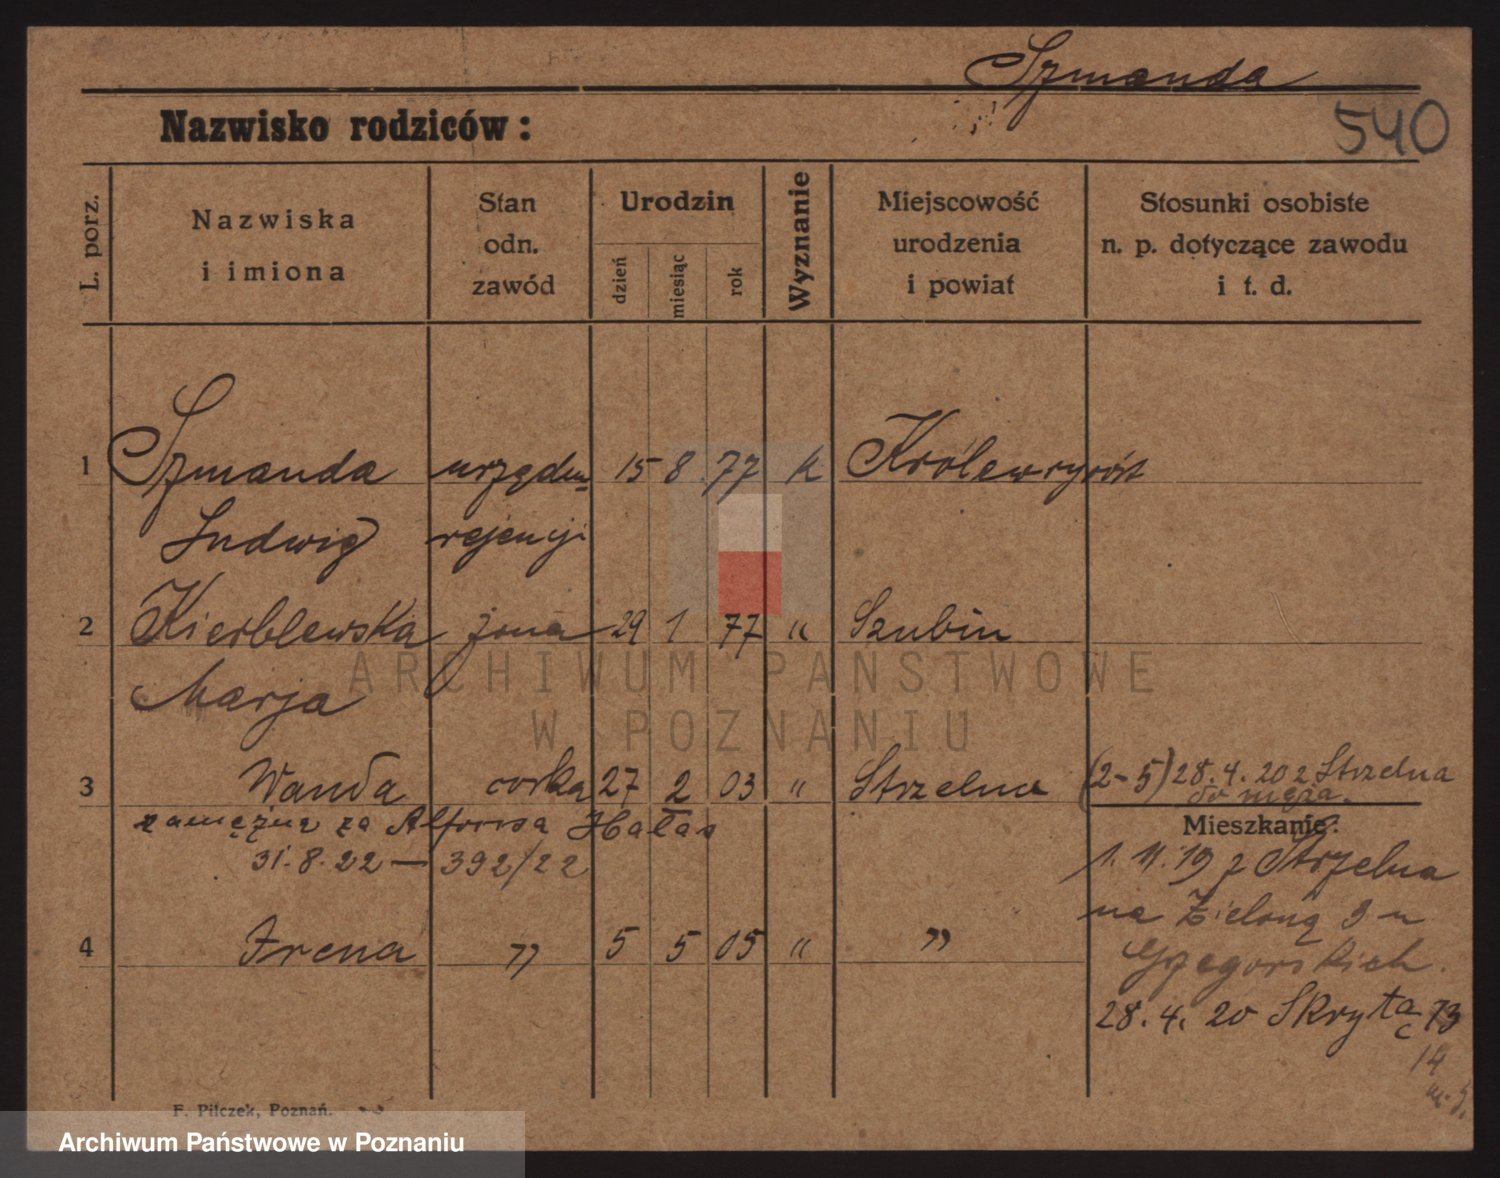 Szmanda
540
Nazwisko rodziców:
L. porz.
Nazwiska
i imiona
Stan
odn.
zawód
Urodzin
dzień
miesiąc
rok
Wyznanie
Miejscowość
urodzenia
i powiat
Stosunki osobiste
n. p. dotyczące zawodu
i t. d.
1 Szmanda urzędn. 15 8 77 k
Ludwig rejencji
2 Kierblewska żona 29 1 77 " Szubin
Marja
3 Wanda corka 27 2 03 " Strzelna (2-5) 28.4.20 z Strzelna
do męża.
zamężna za Alfonsa Hałas
Mieszkanie:
31.8.22 — 392/22
1.11.19 z Strzelna
na Zieloną 9 u
4 Irena " 5 5 05 " "
Grzegorskich.
28.4.20 Skryta 13
14
ARCHIWUM PAŃSTWOWE
W POZNANIU
F. Pilczek, Poznań.
Archiwum Państwowe w Poznaniu